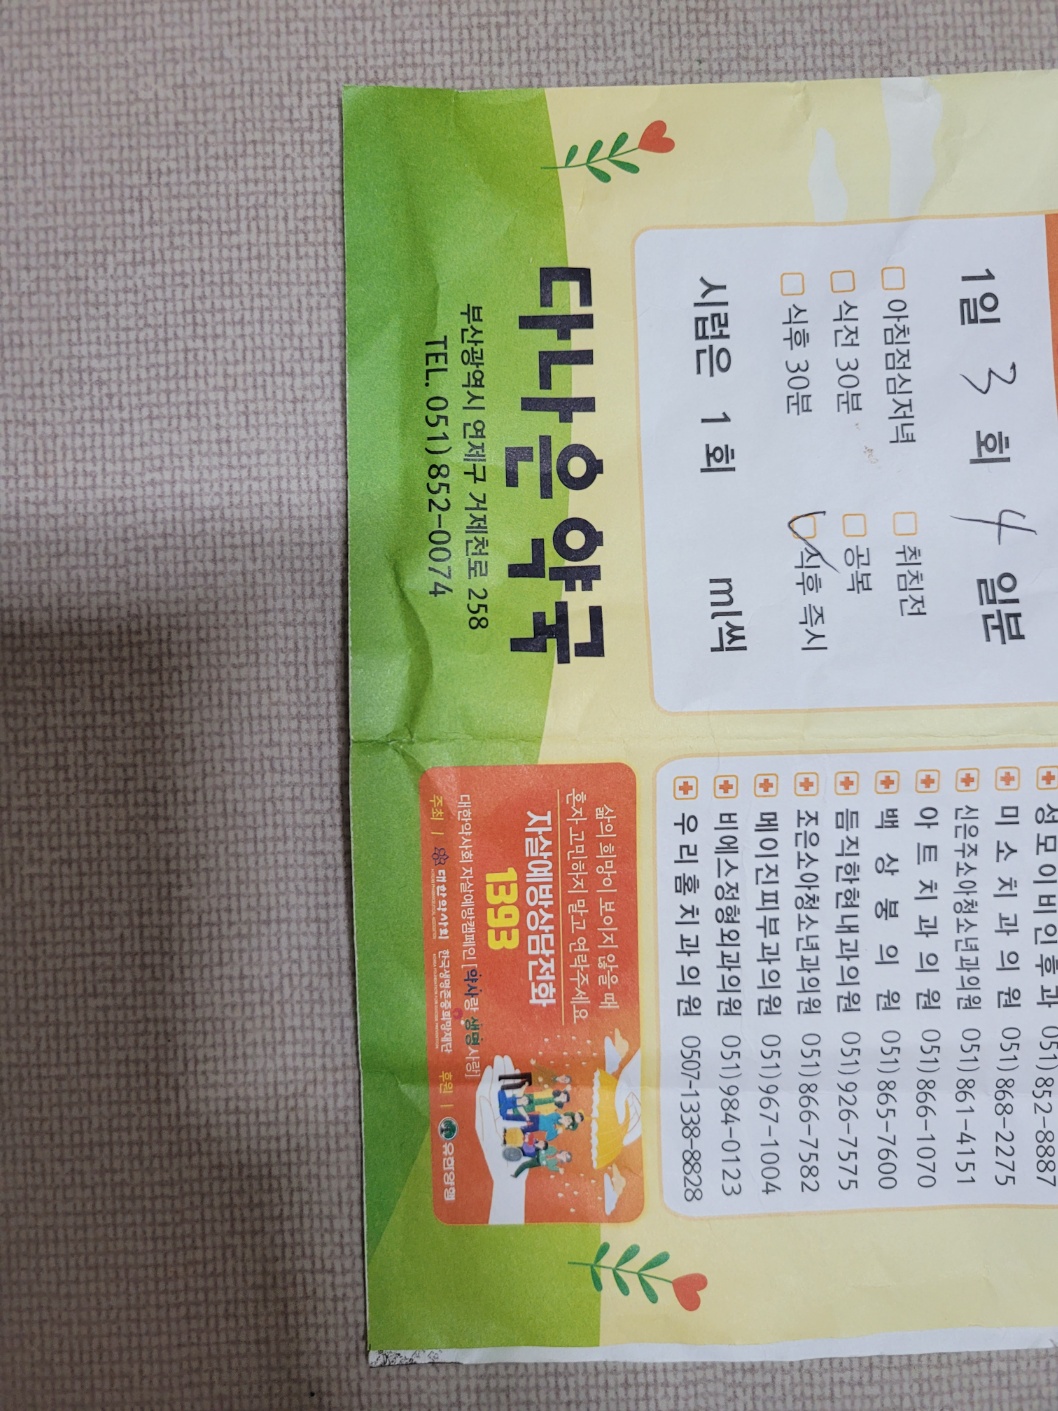 1일 3 회 4 일분
아침점심저녁 취침전
식전 30분 공복
식후 30분 식후 즉시
시럽은 1 회 ml씩
다나은약국
부산광역시 연제구 거제천로 258
TEL. 051) 852-0074
성모이비인후과 051) 852-8887
미소치과의원 051) 868-2275
신은주소아청소년과의원 051) 861-4151
아트치과의원 051) 866-1070
백상봉의원 051) 865-7600
듬직한현내과의원 051) 926-7575
조은소아청소년과의원 051) 866-7582
메이진피부과의원 051) 967-1004
비에스정형외과의원 051) 984-0123
우리홈치과의원 0507-1338-8828
삶의 희망이 보이지 않을 때
혼자 고민하지 말고 연락주세요
자살예방상담전화
1393
대한약사회 자살예방캠페인 [약사랑 생명사랑]
주최 | 대한약사회 한국생명존중희망재단 후원 | 유한양행